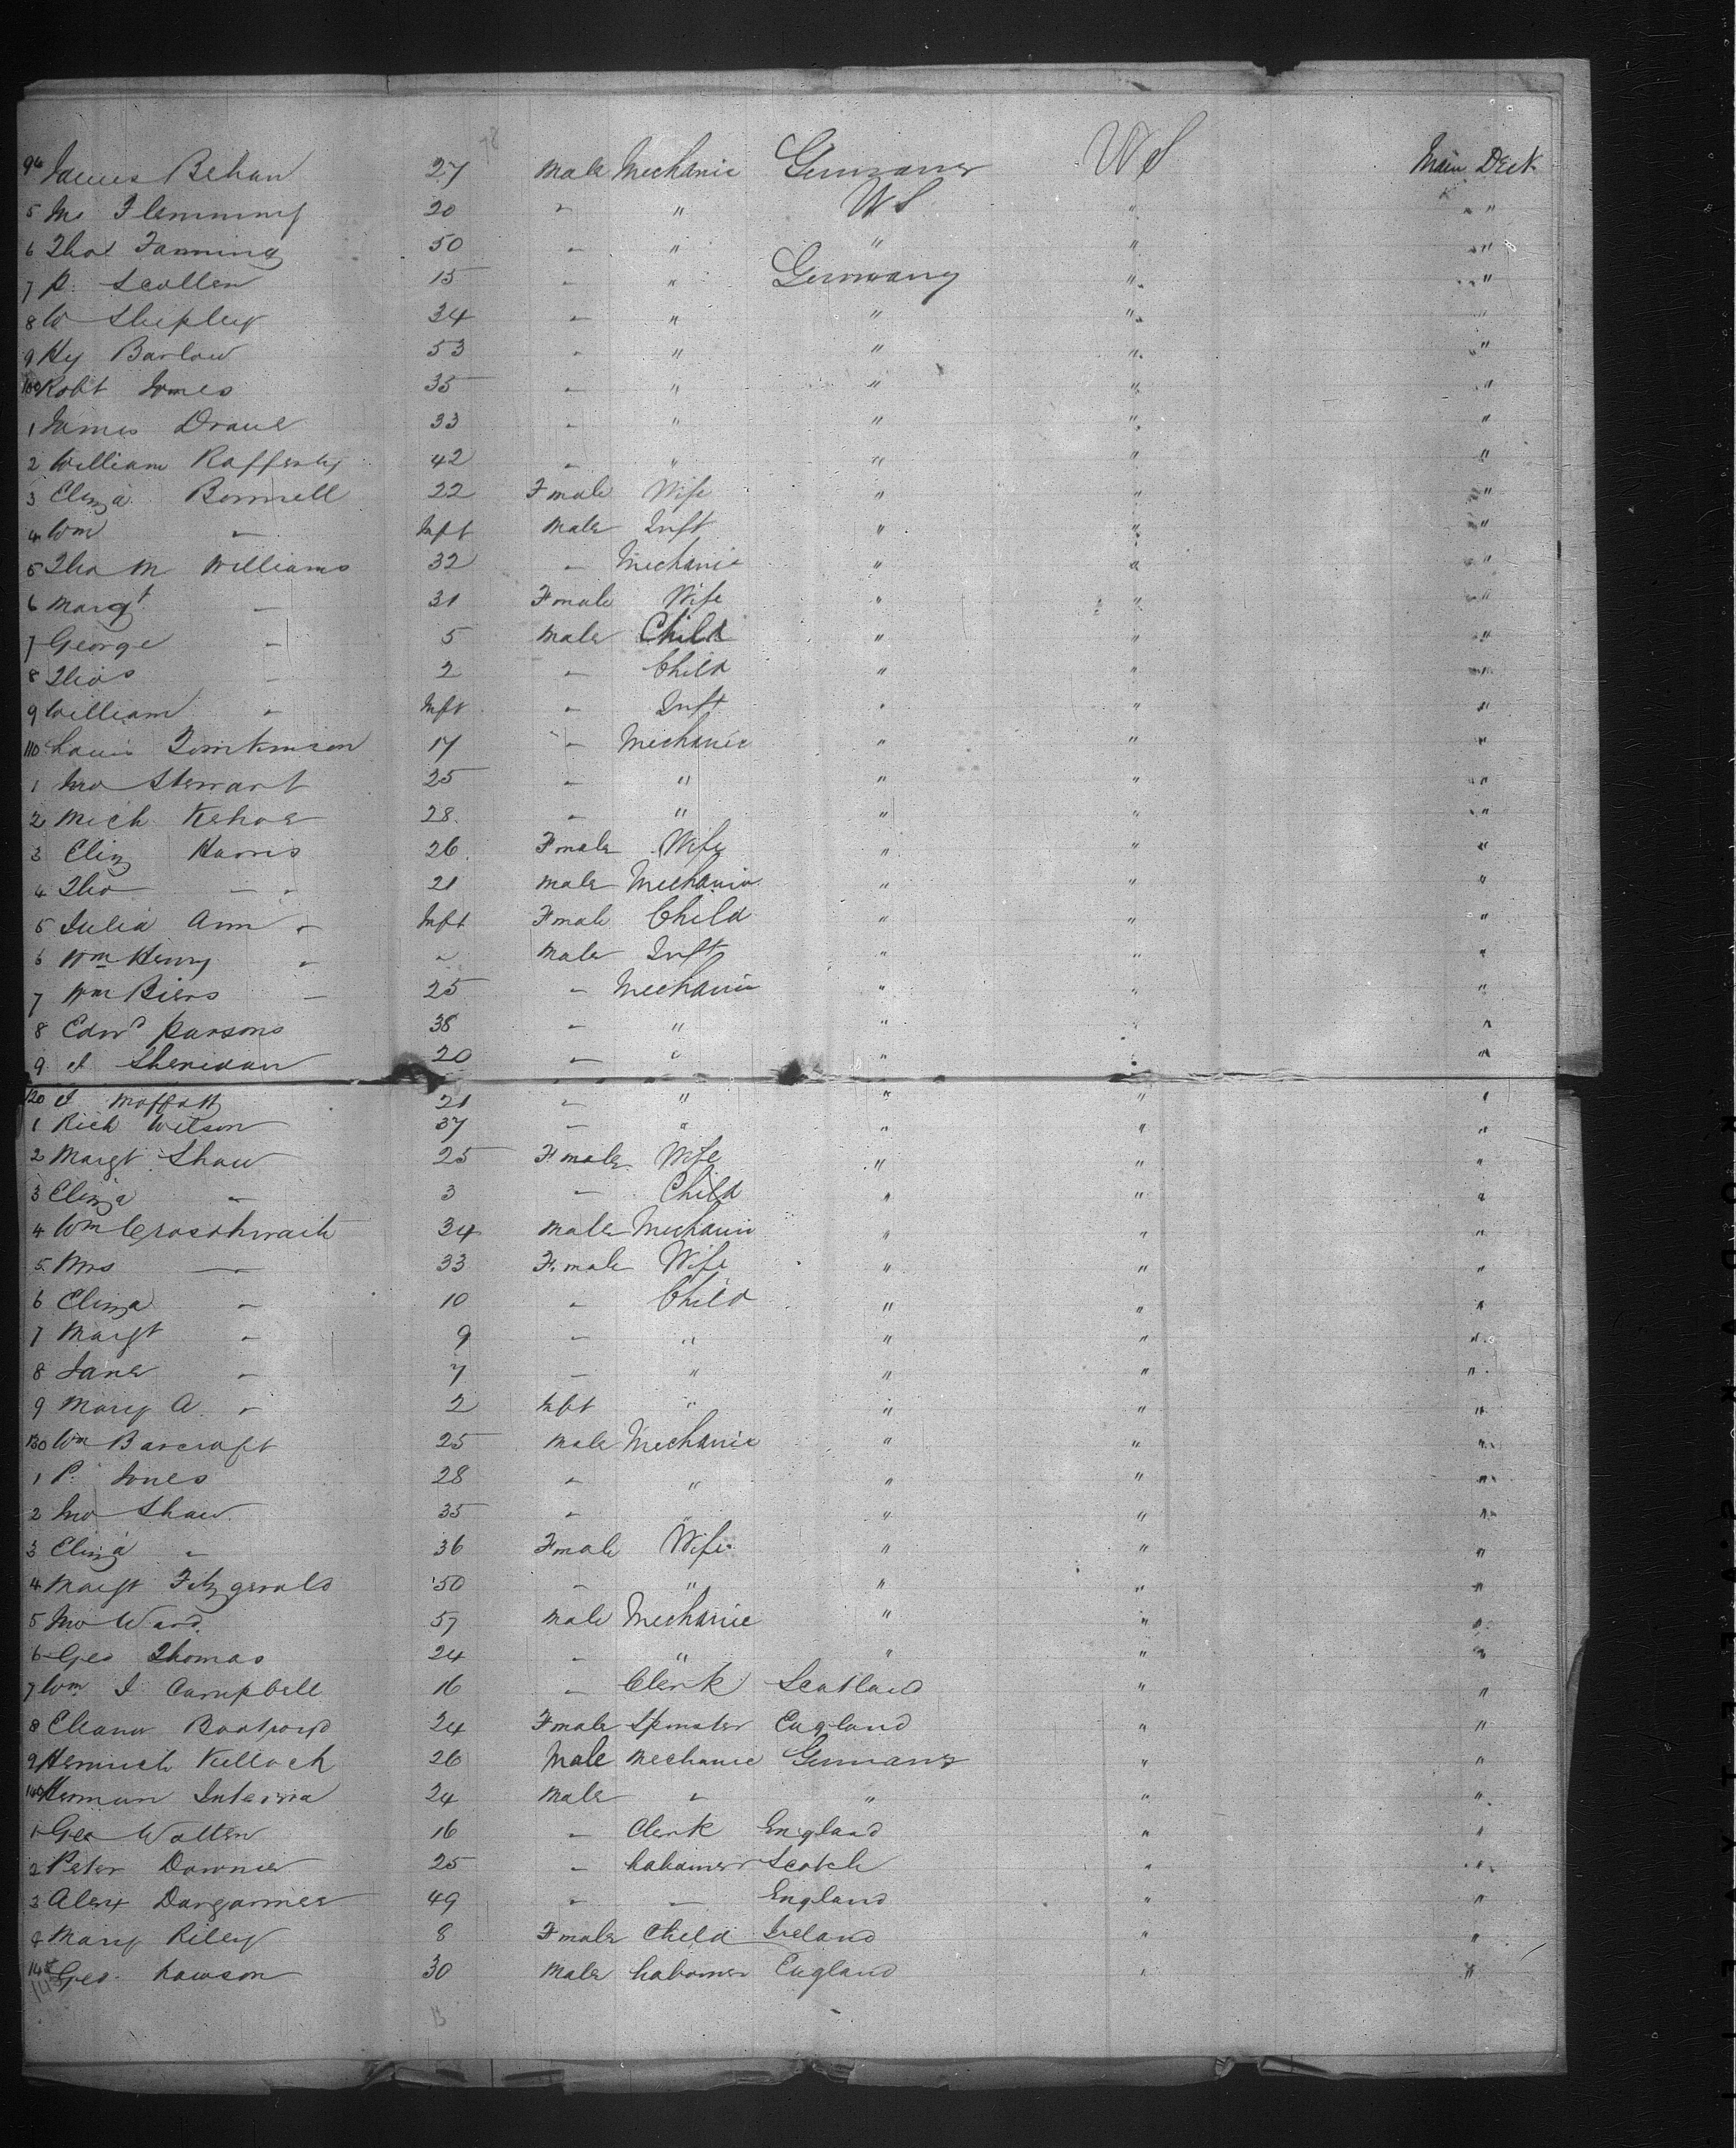 94 James Behan 27 Male Mechanic Germany US Main Deck
5 Jno Flemming 20 " " US " " "
6 Thos Fanning 50 " " " " " "
7 P. Scullen 15 " " Germany " " "
8 W Shipley 34 " " " " "
9 Hy Barlow 53 " " " " " "
100 Robt Jones 35 " " " " " "
1 James Drane 33 " " " " "
2 William Rafferty 42 " " " " "
3 Eliza Bonnell 22 Female Wife " " "
4 Wm " Inft Male Inft " " "
5 Tho M Williams 32 " Mechanic " " "
6 Margt " 31 Female Wife " " "
7 George " 5 Male Child " " "
8 Thos " 2 " Child " " "
9 William " Inft " Inft " " "
110 Louis Tomkinson 17 " Mechanic " " "
1 Jno Sterrart 25 " " " " "
2 Mich Kehoe 28 " " " " "
3 Eliz Harris 26 Female Wife " " "
4 Tho " 21 Male Mechanic " " "
5 Julia Ann " Inft Female Child " " "
6 Wm Henry " " Male Inft " " "
7 Wm Biers 25 " Mechanic " " "
8 Edwd Parsons 38 " " " " "
9 J Sheridan 20 " " " " "
120 J Moffatt 21 " " " " "
1 Rich Wilson 37 " " " " "
2 Margt Shaw 25 Female Wife " " "
3 Eliza " 3 " Child " " "
4 Wm Crosthwaite 34 Male Mechanic " " "
5 Mrs " 33 Female Wife " " "
6 Eliza " 10 " Child " " "
7 Margt " 9 " " " " "
8 Jane " 7 " " " " "
9 Mary A. " 2 Inft " " " "
130 Wm Barcroft 25 Male Mechanic " " "
1 P. Jones 28 " " " " "
2 Jno Shaw 35 " " " " "
3 Eliza " 36 Female Wife " " "
4 Margt Fitzgerald 50 " " " " "
5 Jno Ward 57 Male Mechanic " " "
6 Geo Thomas 24 " " " " "
7 Wm J Campbell 16 " Clerk Scotland " "
8 Eleanor 24 Female Spinster England " "
9 Heinrich Kulloch 26 Male Mechanic Germany " "
140 Herman 24 Male " " " "
1 Geo Walter 16 " Clerk England " "
2 Peter Downie 25 " Labourer Scotch " "
3 Alex 49 " " England " "
4 Mary Riley 8 Female Child Ireland " "
145 Geo. Lawson 30 Male Labourer England " "